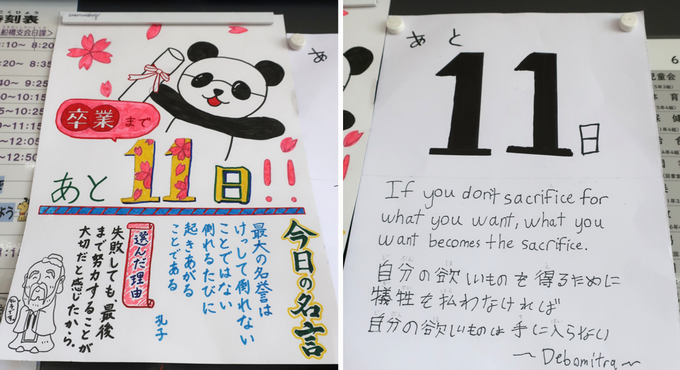 時刻表
船橋支会日課
:10～ 8:20
8:35
:40～ 9:25
10:15
0:15
12:05
12:50
卒業まで
あと11日!!
今日の名言
最大の名誉は
けっして倒れない
ことではない
倒れるたびに
起きあがる
ことである
孔子
選んだ理由
失敗しても最後
まで努力することが
大切だと感じたから。
あ
あと
11日
If you don't sacrifice for
what you want, what you
want becomes the sacrifice.
自分の欲しいものを得るために
犠牲を払わなければ
自分の欲しいものは手に入らない
～Debomitra～
6
児童会
体育